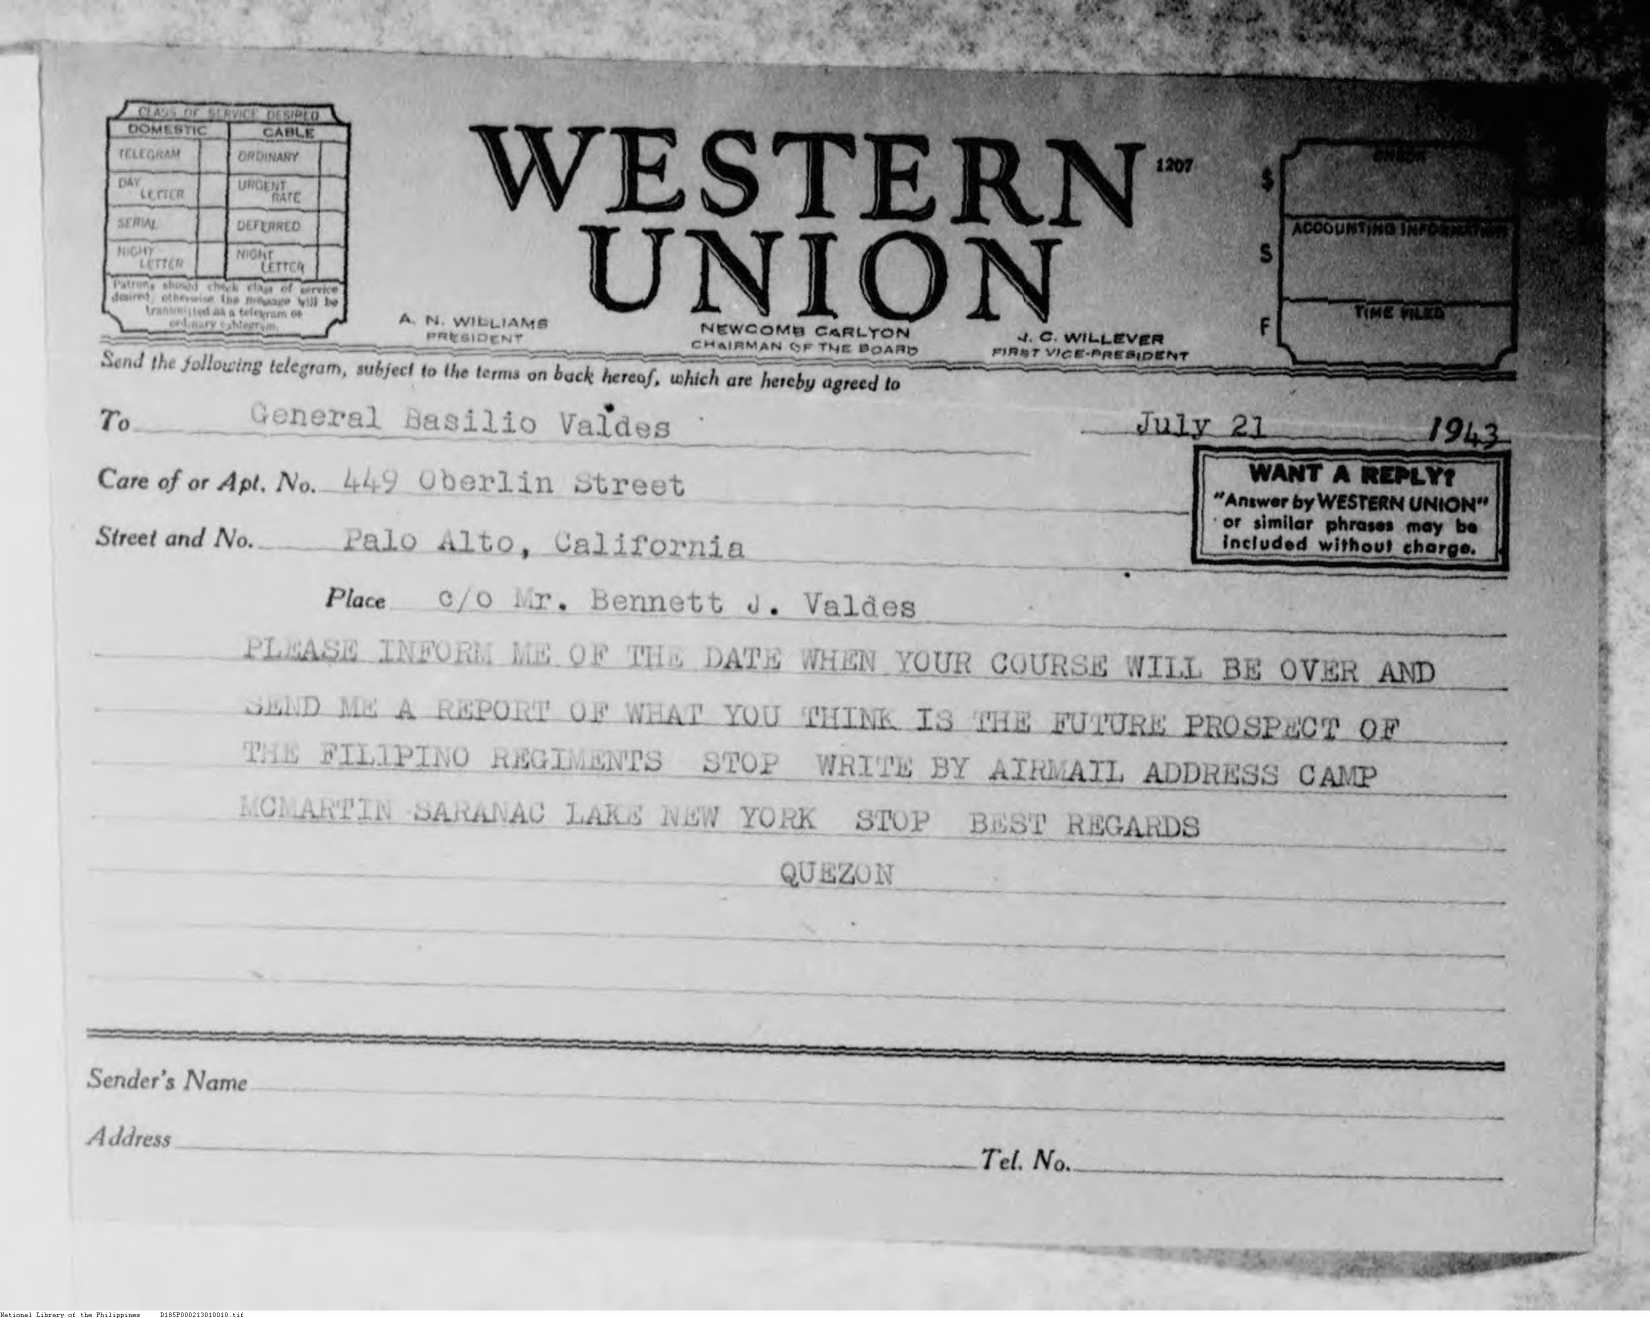 CLASS OF SERVICE DESIRED
DOMESTIC CABLE
TELEGRAM ORDINARY
DAY LETTER URGENT RATE
SERIAL DEFERRED
NIGHT LETTER NIGHT LETTER
Patrons should check class of service
desired; otherwise the message will be
transmitted as a telegram or
ordinary cablegram.
WESTERN
UNION
1207
A. N. WILLIAMS
PRESIDENT
NEWCOMB CARLTON
CHAIRMAN OF THE BOARD
J. C. WILLEVER
FIRST VICE-PRESIDENT
$ CHECK
S ACCOUNTING INFORMATION
F TIME FILED
Send the following telegram, subject to the terms on back hereof, which are hereby agreed to
To General Basilio Valdes July 21 1943
Care of or Apt. No. 449 Oberlin Street
Street and No. Palo Alto, California
Place c/o Mr. Bennett J. Valdes
WANT A REPLY?
"Answer by WESTERN UNION"
or similar phrases may be
included without charge.
PLEASE INFORM ME OF THE DATE WHEN YOUR COURSE WILL BE OVER AND
SEND ME A REPORT OF WHAT YOU THINK IS THE FUTURE PROSPECT OF
THE FILIPINO REGIMENTS STOP WRITE BY AIRMAIL ADDRESS CAMP
MCMARTIN SARANAC LAKE NEW YORK STOP BEST REGARDS
QUEZON
Sender's Name
Address Tel. No.
National Library of the Philippines D185P000213010010.tif